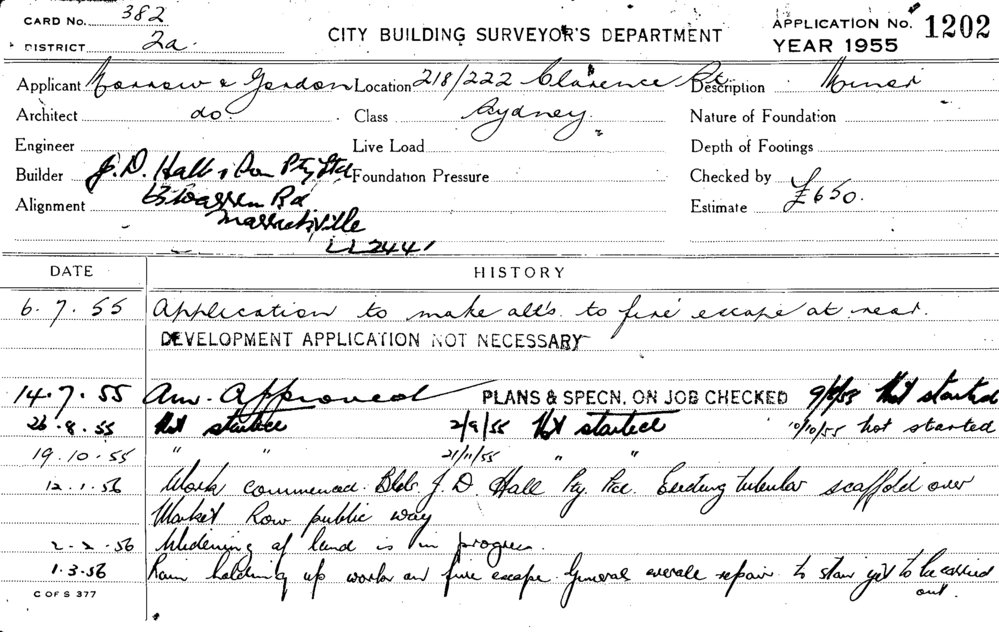 CARD No. 382
DISTRICT 2a.
CITY BUILDING SURVEYOR'S DEPARTMENT
APPLICATION No. 1202
YEAR 1955
Applicant Morrow & Gordon Location 218/222 Clarence St. Description Minor
Architect do. Class Sydney. Nature of Foundation
Engineer Live Load Depth of Footings
Builder J. D. Hall & Son Pty Ltd Foundation Pressure Checked by
Alignment Warren Rd Estimate £650.
Marrickville
LL2441
DATE HISTORY
6.7.55 Application to make alts. to fire escape at rear.
DEVELOPMENT APPLICATION NOT NECESSARY
14.7.55 Am. Approved PLANS & SPECN. ON JOB CHECKED 9/8/55 Not started
26.8.55 Not started 2/9/55 Not started 10/10/55 not started
19.10.55 " " 21/11/55 " "
12.1.56 Work commenced. Bldr. J. D. Hall Pty. Ltd. Erecting tubular scaffold over
Market Row public way
2-2-56 Widening of land is in progress.
1.3.56 Rain holding up work on fire escape. General overall repair to stair yet to be carried
out.
C OF S 377